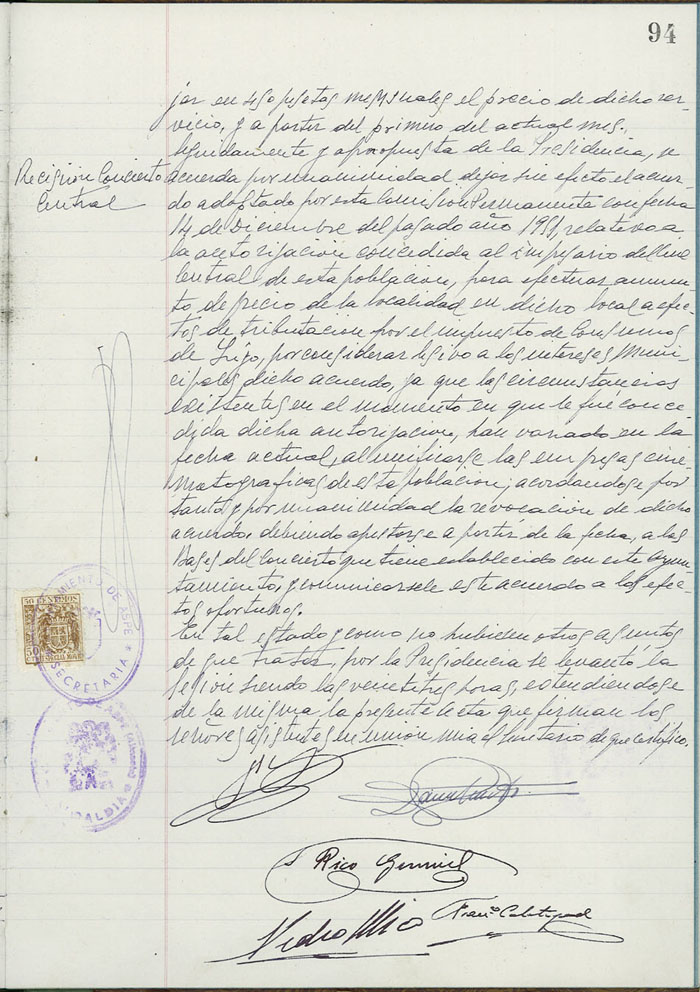 94
jar en 450 pesetas mensuales el precio de dicho ser-
vicio, y a partir del primero del actual mes.
Recisión Concierto
Central
Seguidamente y a propuesta de la Presidencia, se
acuerda por unanimidad dejar sin efecto el acuer-
do adoptado por esta Comisión Permanente con fecha
14 de Diciembre del pasado año 1951, relativo a
la autorización concedida al empresario del Cine
Central de esta población, para efectuar aumen-
to, de precio de la localidad en dicho local a efec-
tos de tributación por el impuesto de Consumos
de Lujo, por considerar lesivo a los intereses Muni-
cipales dicho acuerdo, ya que las circunstancias
existentes en el momento en que le fué conce-
dida dicha autorización, han variado en la
fecha actual, al unificarse las empresas cine-
matograficas de esta población; acordandose por
tanto y por unanimidad la revocación de dicho
acuerdo, debiendo ajustarse a partir de la fecha, a las
Bases del Concierto que tiene establecido con este Ayun-
tamiento, y comunicarsele este acuerdo a los efec-
tos oportunos.
En tal estado y como no hubieren otros asuntos
de que tratar, por la Presidencia se levantó la
sesión siendo las veintitres horas, extendiendose
de la misma la presente acta que firman los
señores asistentes en unión mia el Secretario de que certifico.
50 CENTIMOS
AYUNTAMIENTO DE ASPE
SECRETARIA
ALCALDIA
Rico
Pedro
Franco Calatayud